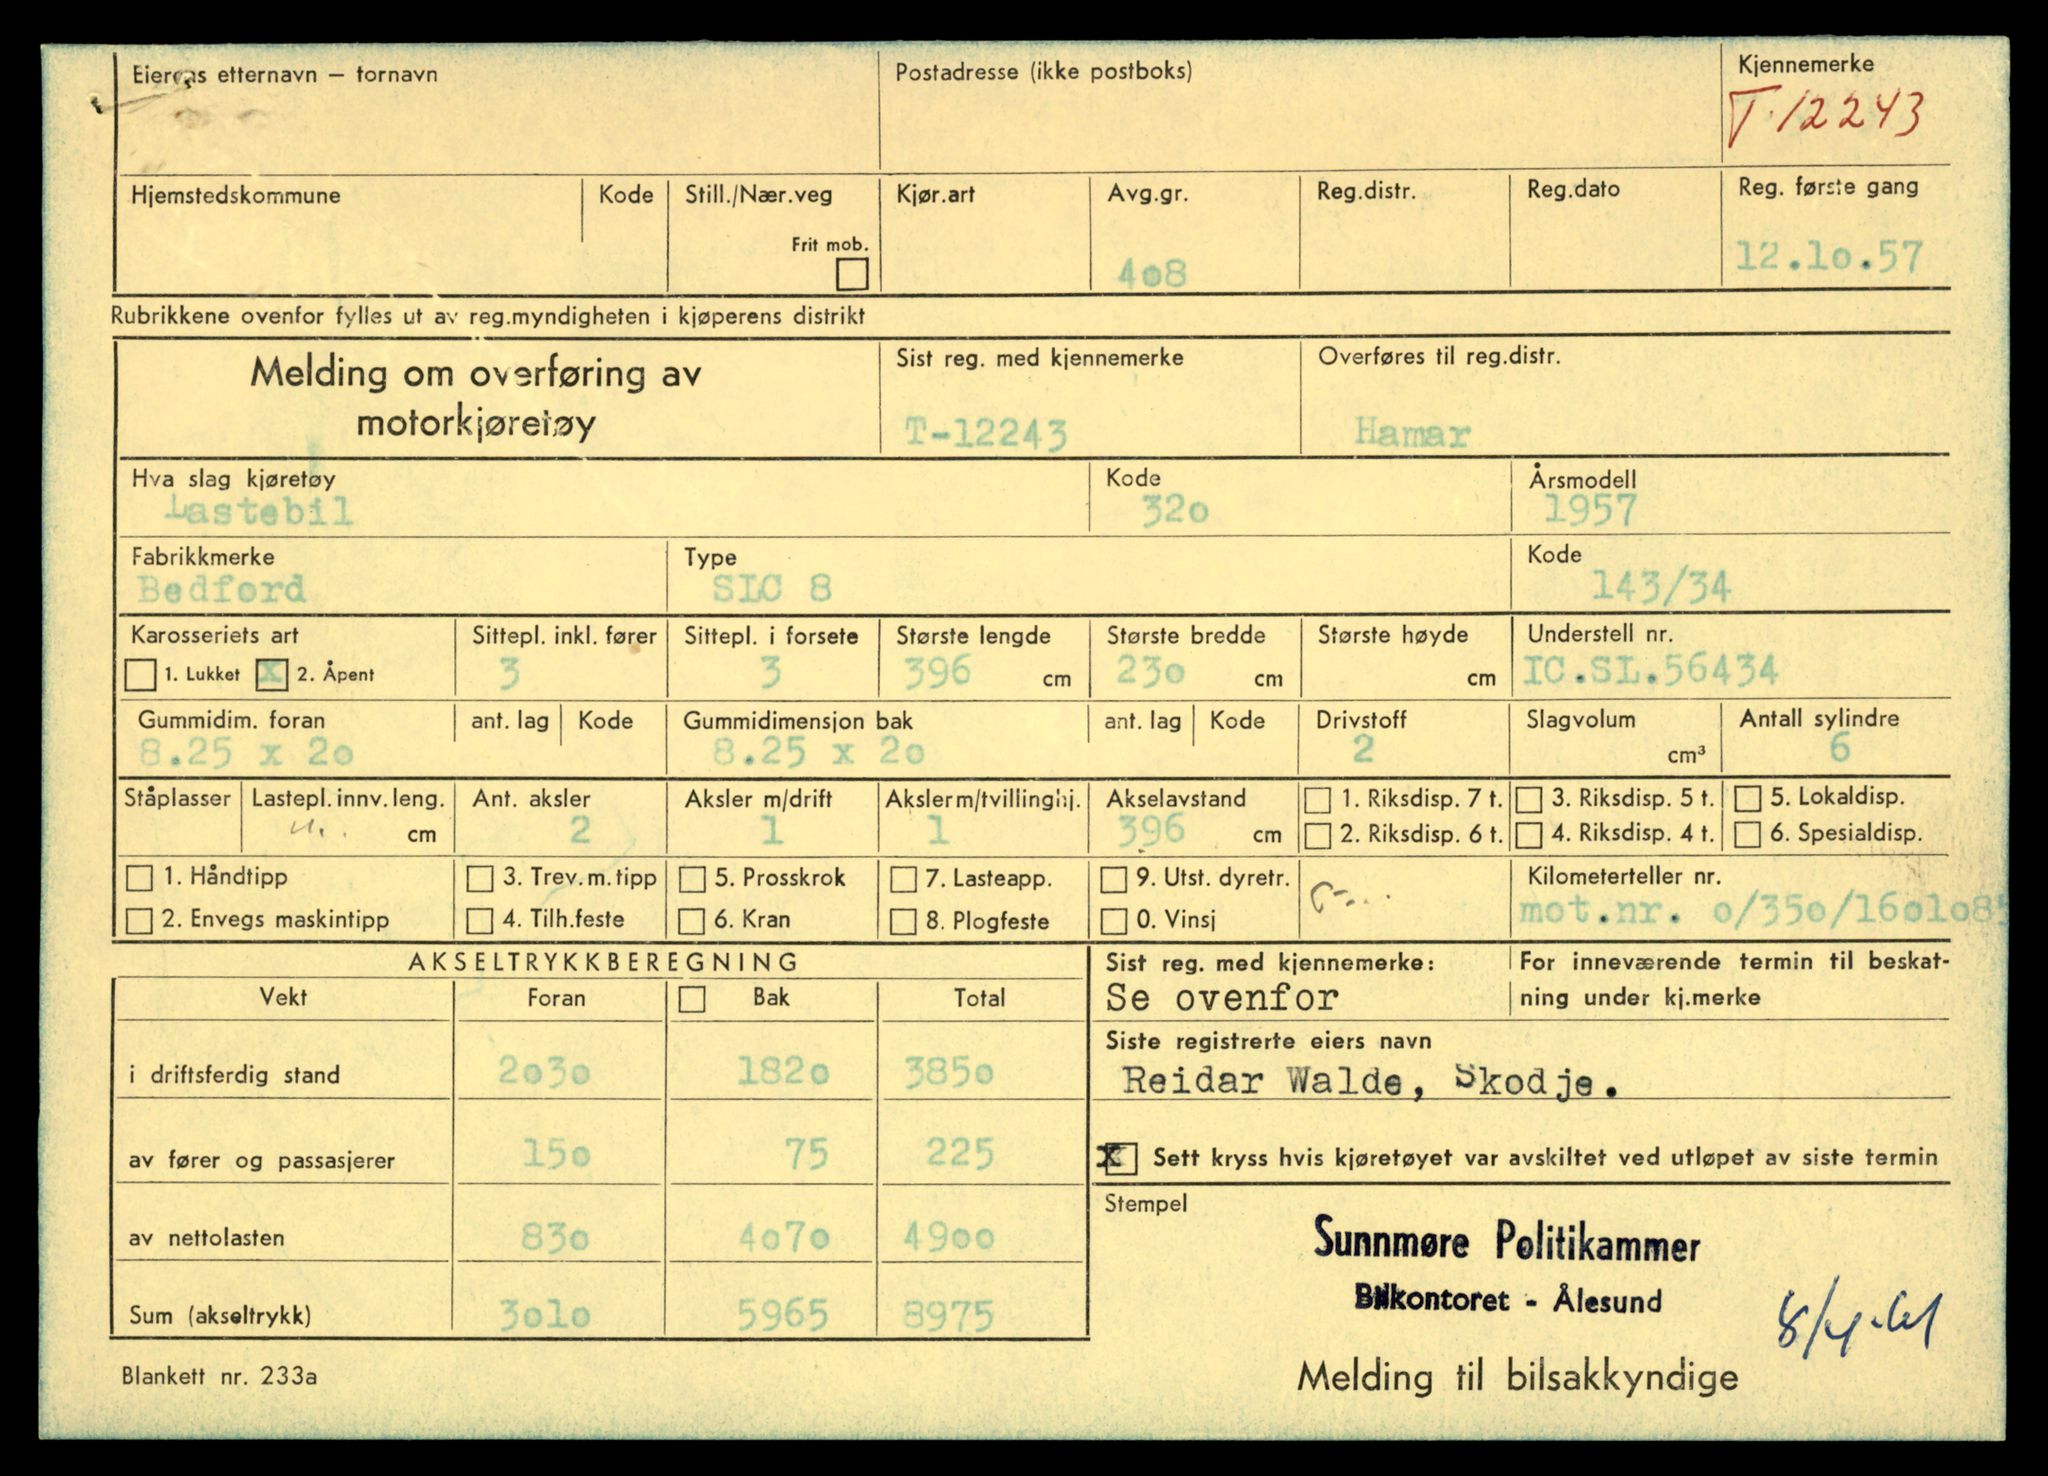 Eierens etternavn – fornavn
Postadresse (ikke postboks)
Kjennemerke
T-12243
Hjemstedskommune
Kode
Still./Nær.veg
Frit mob.
Kjør.art
Avg.gr.
408
Reg.distr.
Reg.dato
Reg. første gang
12.10.57
Rubrikkene ovenfor fylles ut av reg.myndigheten i kjøperens distrikt
Melding om overføring av
motorkjøretøy
Sist reg. med kjennemerke
T-12243
Overføres til reg.distr.
Hamar
Hva slag kjøretøy
Lastebil
Kode
320
Årsmodell
1957
Fabrikkmerke
Bedford
Type
SLC 8
Kode
143/34
Karosseriets art
1. Lukket X 2. Åpent
Sittepl. inkl. fører
3
Sittepl. i forsete
3
Største lengde
396 cm
Største bredde
230 cm
Største høyde
cm
Understell nr.
IC.SL.56434
Gummidim. foran
8.25 x 20
ant. lag
Kode
Gummidimensjon bak
8.25 x 20
ant. lag
Kode
Drivstoff
2
Slagvolum
cm³
Antall sylindre
6
Ståplasser
Lastepl. innv. leng.
cm
Ant. aksler
2
Aksler m/drift
1
Aksler m/tvillinghj.
1
Akselavstand
396 cm
1. Riksdisp. 7 t.
2. Riksdisp. 6 t.
3. Riksdisp. 5 t.
4. Riksdisp. 4 t.
5. Lokaldisp.
6. Spesialdisp.
1. Håndtipp
2. Envegs maskintipp
3. Trev. m. tipp
4. Tilh.feste
5. Prosskrok
6. Kran
7. Lasteapp.
8. Plogfeste
9. Utst. dyretr.
0. Vinsj
Kilometerteller nr.
mot.nr. o/350/1601085
AKSELTRYKKBEREGNING
Vekt Foran Bak Total
i driftsferdig stand 2030 1820 3850
av fører og passasjerer 150 75 225
av nettolasten 830 4070 4900
Sum (akseltrykk) 3010 5965 8975
Sist reg. med kjennemerke:
Se ovenfor
For inneværende termin til beskat-
ning under kj.merke
Siste registrerte eiers navn
Reidar Walde, Skodje.
X Sett kryss hvis kjøretøyet var avskiltet ved utløpet av siste termin
Stempel
Sunnmøre Politikammer
Bilkontoret - Ålesund
8/4-61
Blankett nr. 233a
Melding til bilsakkyndige